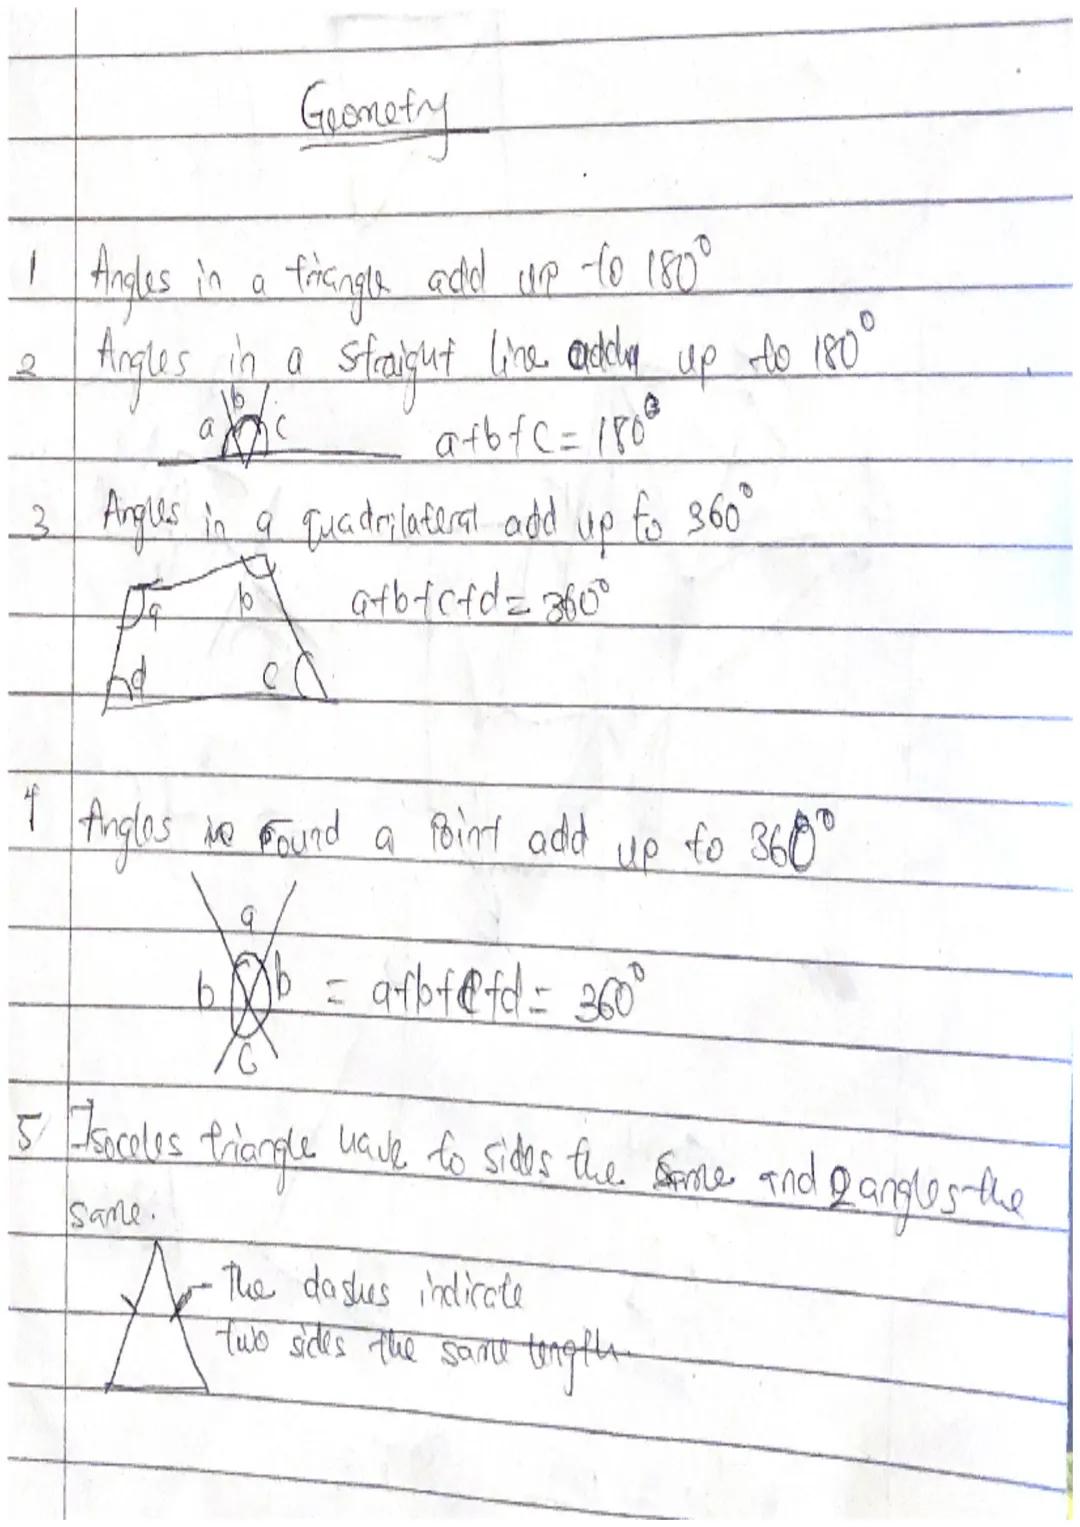 Geometry
1 Angles in a triangle add up to 180°
2 Angles in a straight line add up to 180°
a b c a+b+c = 180°
3 Angles in a quadrilateral add up to 360°
a b a+b+c+d = 360°
d c
4 Angles round a point add up to 360°
a
b b = a+b+c+d = 360°
c
5 Isoceles triangle have to sides the same and 2 angles the
same.
The dashes indicate
two sides the same length.